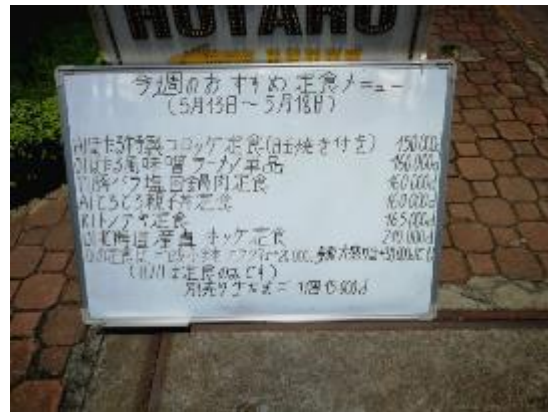 HOTARU
今週のおすすめ定食メニュー
(5月13日～5月18日)
ほたる特製コロッケ定食(目玉焼き付き) 150,000đ
ほたる風味噌ラーメン単品 150,000đ
豚バラ塩回鍋肉定食 160,000đ
とろとろ親子丼定食 160,000đ
トンテキ定食 165,000đ
北海道産 ホッケ定食 210,000đ
定食は
定食のみです)
別売り生たまご 1個 15,000đ